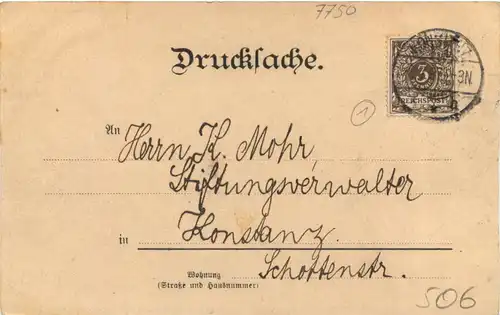 7750
Drucksache.
3
REICHSPOST
1
An Herrn K. Mohr,
Stiftungsverwalter
in Konstanz.
Wohnung Schottenstr.
(Straße und Hausnummer)
506